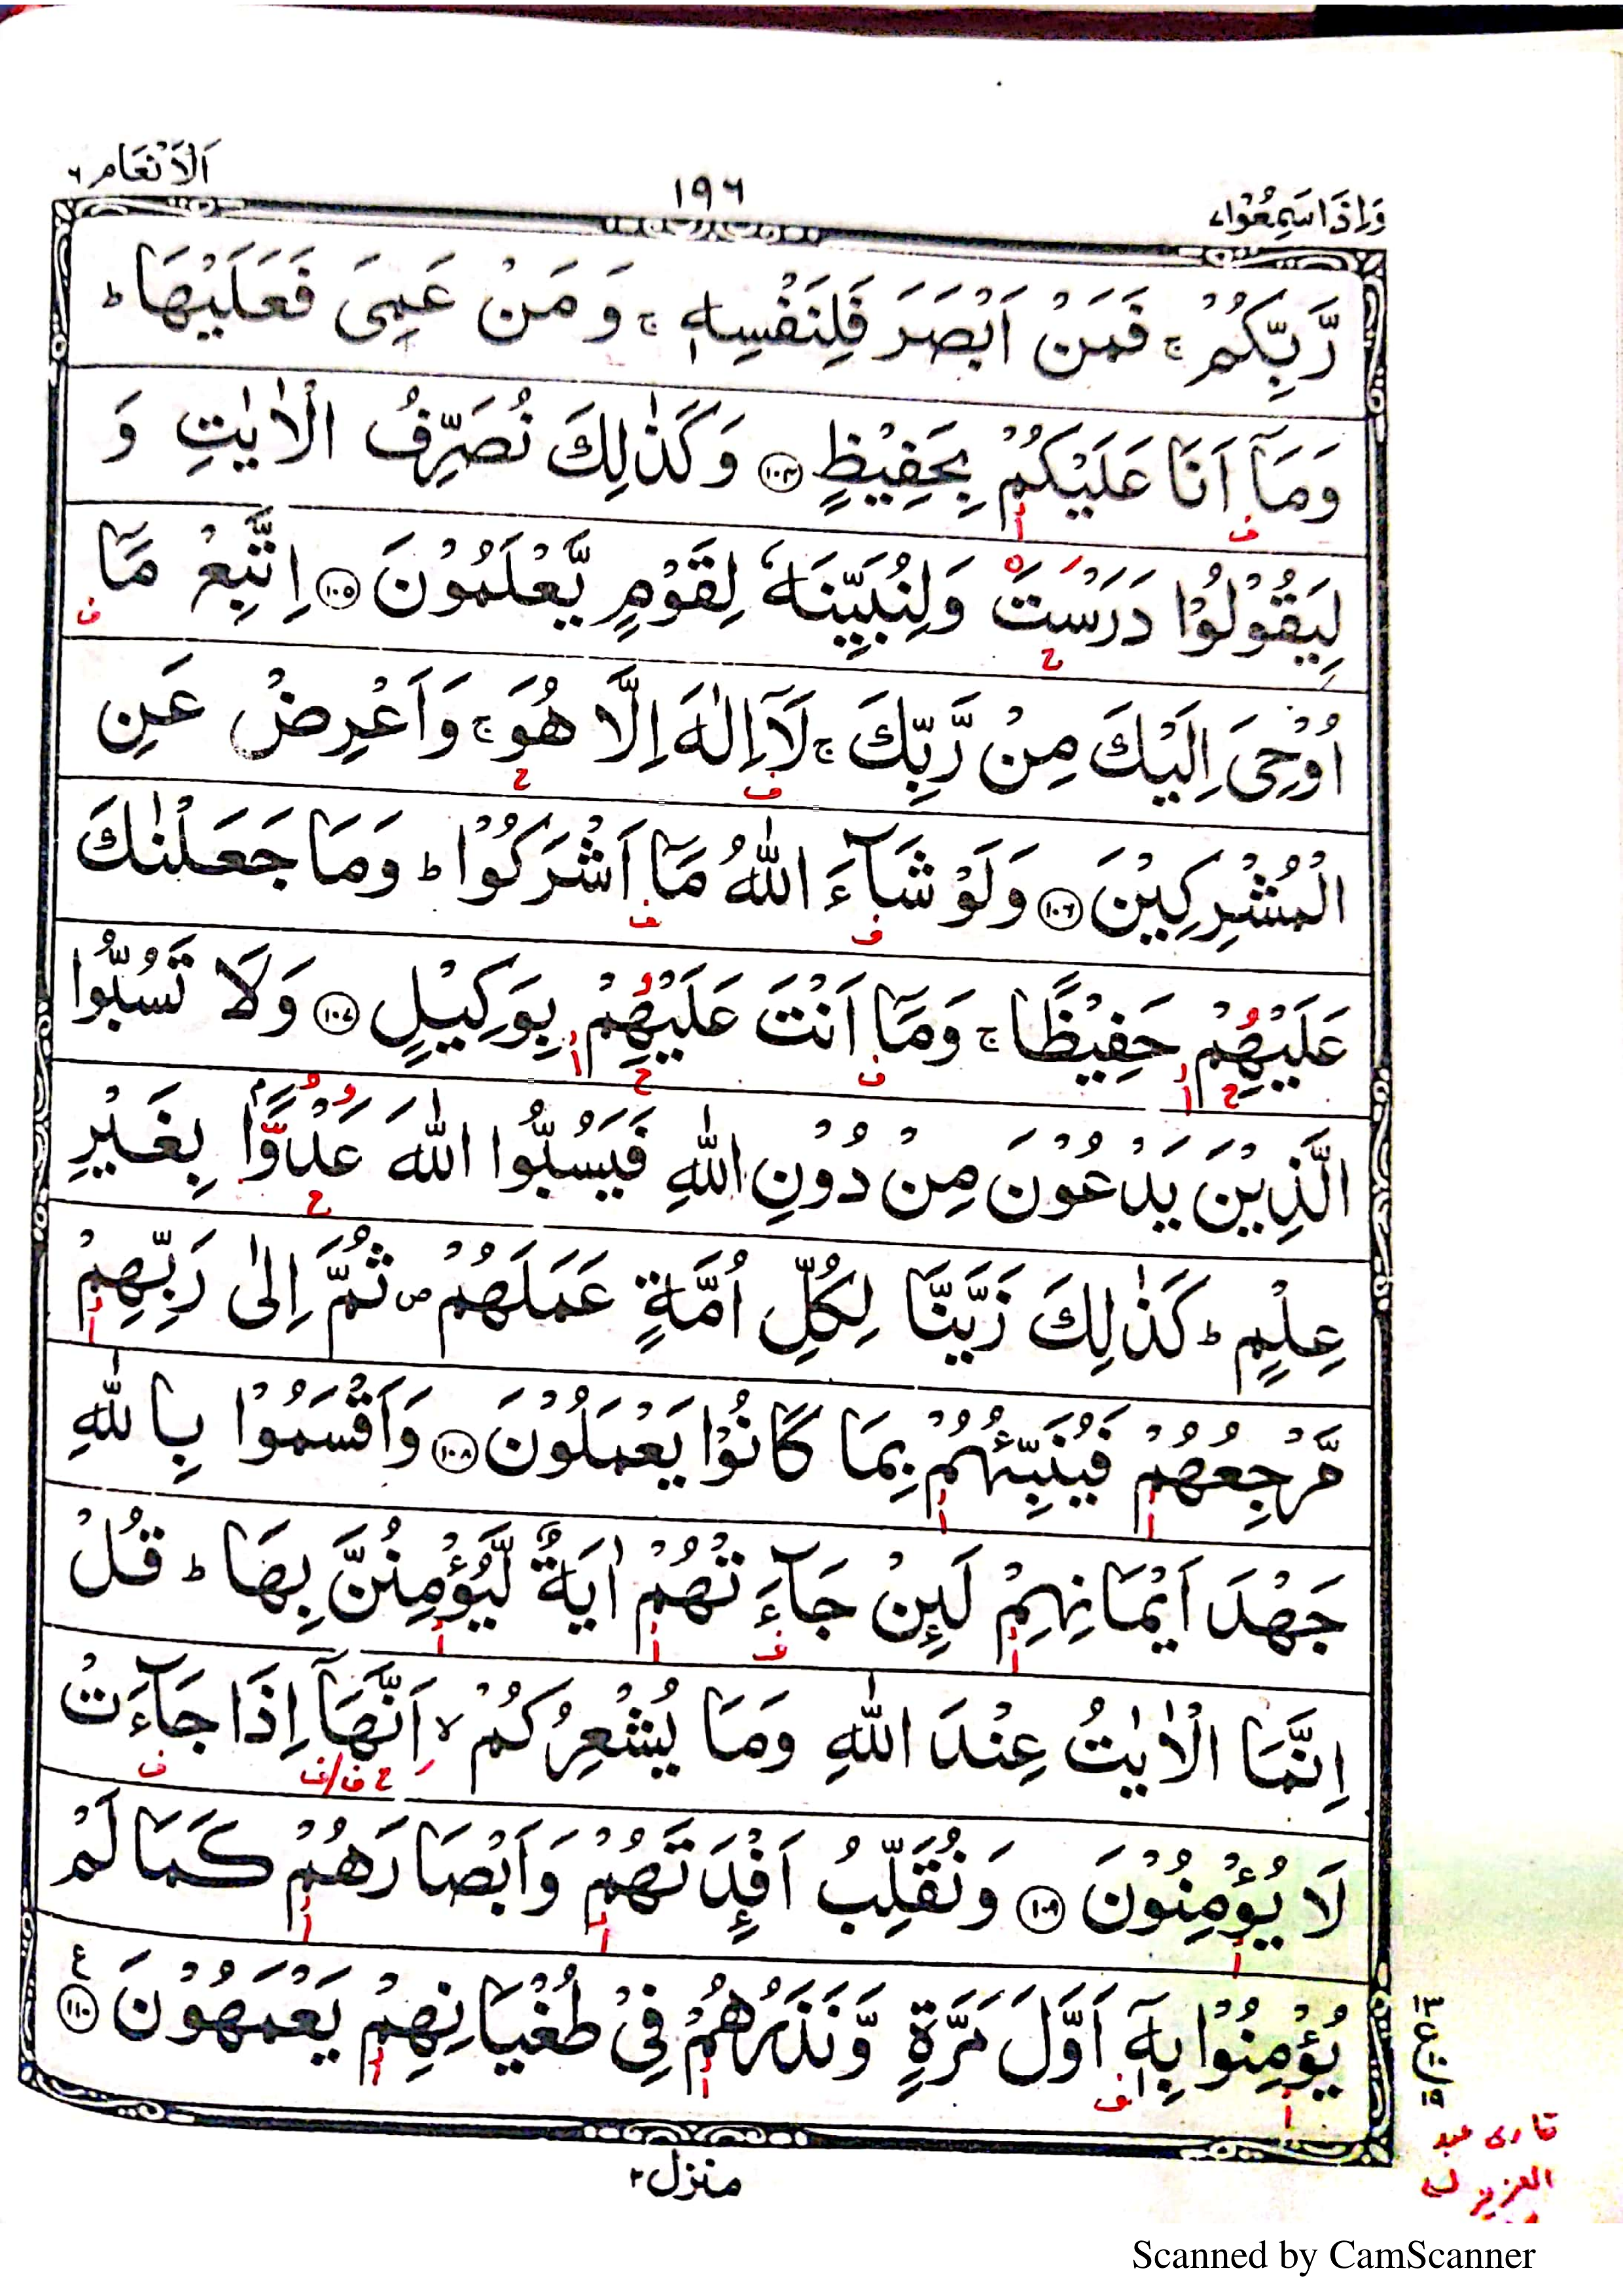 وَاِذَا سَمِعُوْا ٧
١٩٦
اَلْاَنْعَام ٦
رَّبِّكُمْ ۚ فَمَنْ اَبْصَرَ فَلِنَفْسِهٖ ۚ وَ مَنْ عَمِىَ فَعَلَيْهَا ؕ
وَمَاۤ اَنَا عَلَيْكُمْ بِحَفِيْظٍ ۝١٠٤ وَكَذٰلِكَ نُصَرِّفُ الْاٰيٰتِ وَ
لِيَقُوْلُوْا دَرَسْتَ وَلِنُبَيِّنَهٗ لِقَوْمٍ يَّعْلَمُوْنَ ۝١٠٥ اِتَّبِعْ مَاۤ
اُوْحِىَ اِلَيْكَ مِنْ رَّبِّكَ ۚ لَاۤ اِلٰهَ اِلَّا هُوَ ۚ وَاَعْرِضْ عَنِ
الْمُشْرِكِيْنَ ۝١٠٦ وَلَوْ شَآءَ اللّٰهُ مَاۤ اَشْرَكُوْا ؕ وَمَا جَعَلْنٰكَ
عَلَيْهِمْ حَفِيْظًا ۚ وَمَاۤ اَنْتَ عَلَيْهِمْ بِوَكِيْلٍ ۝١٠٧ وَلَا تَسُبُّوا
الَّذِيْنَ يَدْعُوْنَ مِنْ دُوْنِ اللّٰهِ فَيَسُبُّوا اللّٰهَ عَدْوًۢا بِغَيْرِ
عِلْمٍ ؕ كَذٰلِكَ زَيَّنَّا لِكُلِّ اُمَّةٍ عَمَلَهُمْ ۪ ثُمَّ اِلٰى رَبِّهِمْ
مَّرْجِعُهُمْ فَيُنَبِّئُهُمْ بِمَا كَانُوْا يَعْمَلُوْنَ ۝١٠٨ وَاَقْسَمُوْا بِاللّٰهِ
جَهْدَ اَيْمَانِهِمْ لَئِنْ جَآءَتْهُمْ اٰيَةٌ لَّيُؤْمِنُنَّ بِهَا ؕ قُلْ
اِنَّمَا الْاٰيٰتُ عِنْدَ اللّٰهِ وَمَا يُشْعِرُكُمْ ۙ اَنَّهَاۤ اِذَا جَآءَتْ
لَا يُؤْمِنُوْنَ ۝١٠٩ وَنُقَلِّبُ اَفْئِدَتَهُمْ وَاَبْصَارَهُمْ كَمَا لَمْ
يُؤْمِنُوْا بِهٖۤ اَوَّلَ مَرَّةٍ وَّنَذَرُهُمْ فِىْ طُغْيَانِهِمْ يَعْمَهُوْنَ ۝١١٠ ع
قاری عبد
العزیز
منزل ٢
Scanned by CamScanner